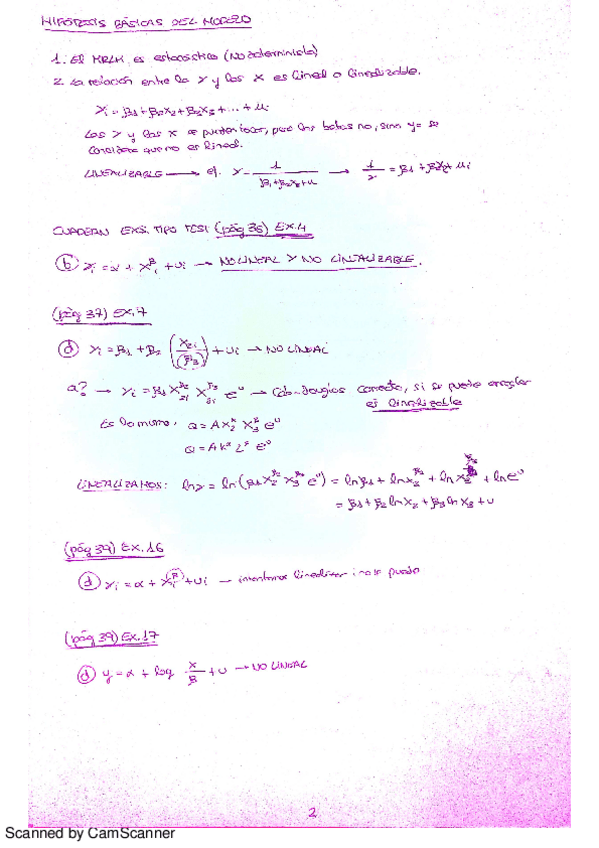 HIPÓTESIS BÁSICAS DEL MODELO
1. El MRLM es estocástico (No determinista)
2. La relación entre la Y y las X es lineal o linealizable.
Yi = β1 + β2X2 + β2X3 + ... + ui
Las Y y las X se pueden tocar, pero las betas no, sino
considera que no es lineal.
LINEALIZABLE → ej. Y = 1 / (β1+β2X2+u) → 1/Y = β1 + β2X2 + ui
CUADERN EXS. TIPO TEST (pág 36) EX.4
(b) Yi = α + Xi^β + ui → NO LINEAL Y NO LINEALIZABLE.
(pág 37) EX.7
(d) Yi = β1 + β2 (X2i/β3) + ui → NO LINEAL
a? → Yi = β1 X2i^β2 X3i^β3 e^u → Cobb-Douglas correcta, si se puede arreglar
es linealizable
Es lo mismo: Q = A X2^α X3^β e^u
Q = A K^α L^β e^u
LINEALIZAMOS: ln Y = ln (β1 X2^β2 X3^β3 e^u) = ln β1 + ln X2^β2 + ln X3^β3 + ln e^u
= β1 + β2 ln X2 + β3 ln X3 + u
(pág 39) EX.16
(d) Yi = α + Xi^β + ui — intentamos linealizar i no se puede
(pág 39) EX.17
(d) y = α + log X/β + u → NO LINEAL
2
Scanned by CamScanner